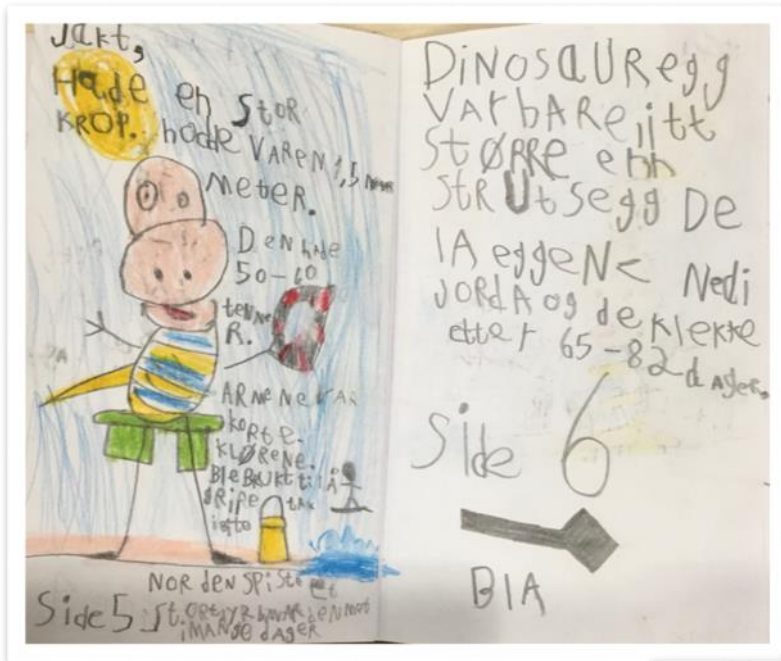 Jakt,
Hade en Stor
KROP. hode VAREN 1,5
meter.
DEN hde
50-60
tenne
R.
ARMENE VAR
KORte.
KLØRENE.
BLE BRUKT tiL Å
GRIPE tAK
NOR deN SPiSte et
Side 5 St.ORt dYR bWAR deN Met
iMANGE dAGER
DiNOSaUR egg
VAR bARE litt
StØRRE enn
StRUtSegg De
lA eggeNe Nedi
JORdA og de klekte
etter 65-82
dAger.
Side 6
BlA